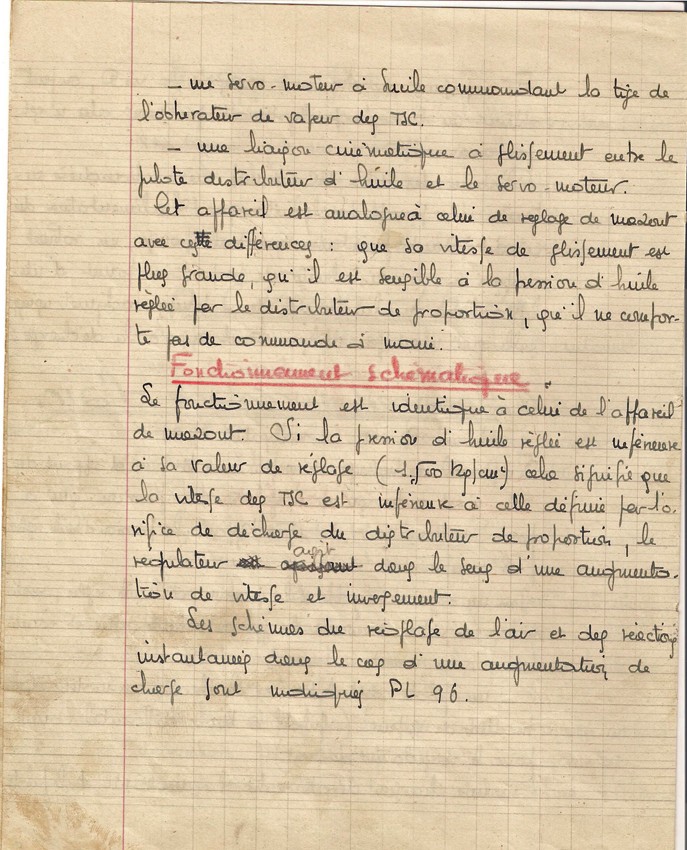 _ une servo-moteur à huile commandant la tige de
l'obturateur de vapeur des TSC.
_ une liaison cinématique à glissement entre le
pilote distributeur d'huile et le servo-moteur.
Cet appareil est analogue à celui de reglage de mazout
avec cette différences : que sa vitesse de glissement est
plus grande, qu'il est sensible à la pression d'huile
règlée par le distributeur de proportion, qu'il ne compor-
te pas de commande à main.
Fonctionnement schématique
Le fonctionnement est identique à celui de l'appareil
de mazout. Si la pression d'huile règlée est inférieure
à sa valeur de réglage (1,500 kp/cm²) cela signifie que
la vitesse des TSC est inférieure à celle définie par l'o-
rifice de décharge du distributeur de proportion, le
régulateur agit dans le sens d'une augmenta-
tion de vitesse et inversement.
Les schémas du réglage de l'air et des réactions
instantanés dans le cas d'une augmentation de
charge sont indiqués PL 96.